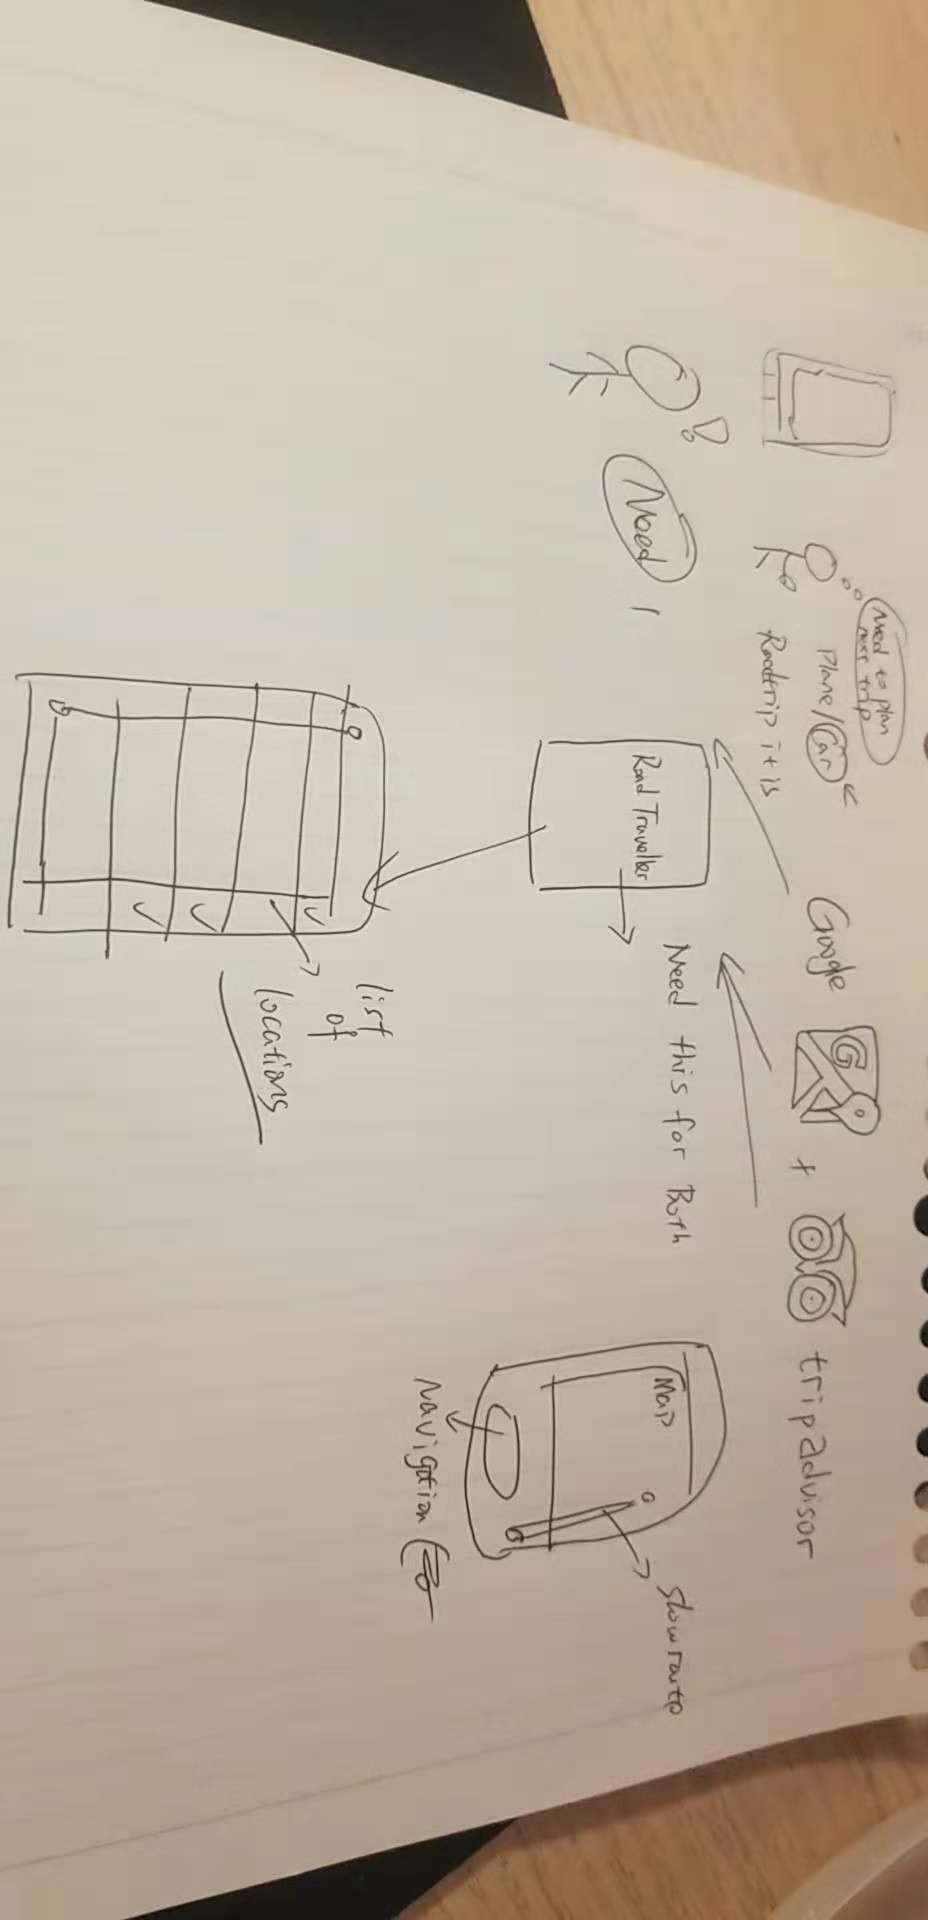 Need to plan
next trip
Plane/Car
Roadtrip it is
Google
G
+
tripadvisor
!
Need
Road Traveller
Need this for Both
Map
slow route
Navigation
list
of
locations